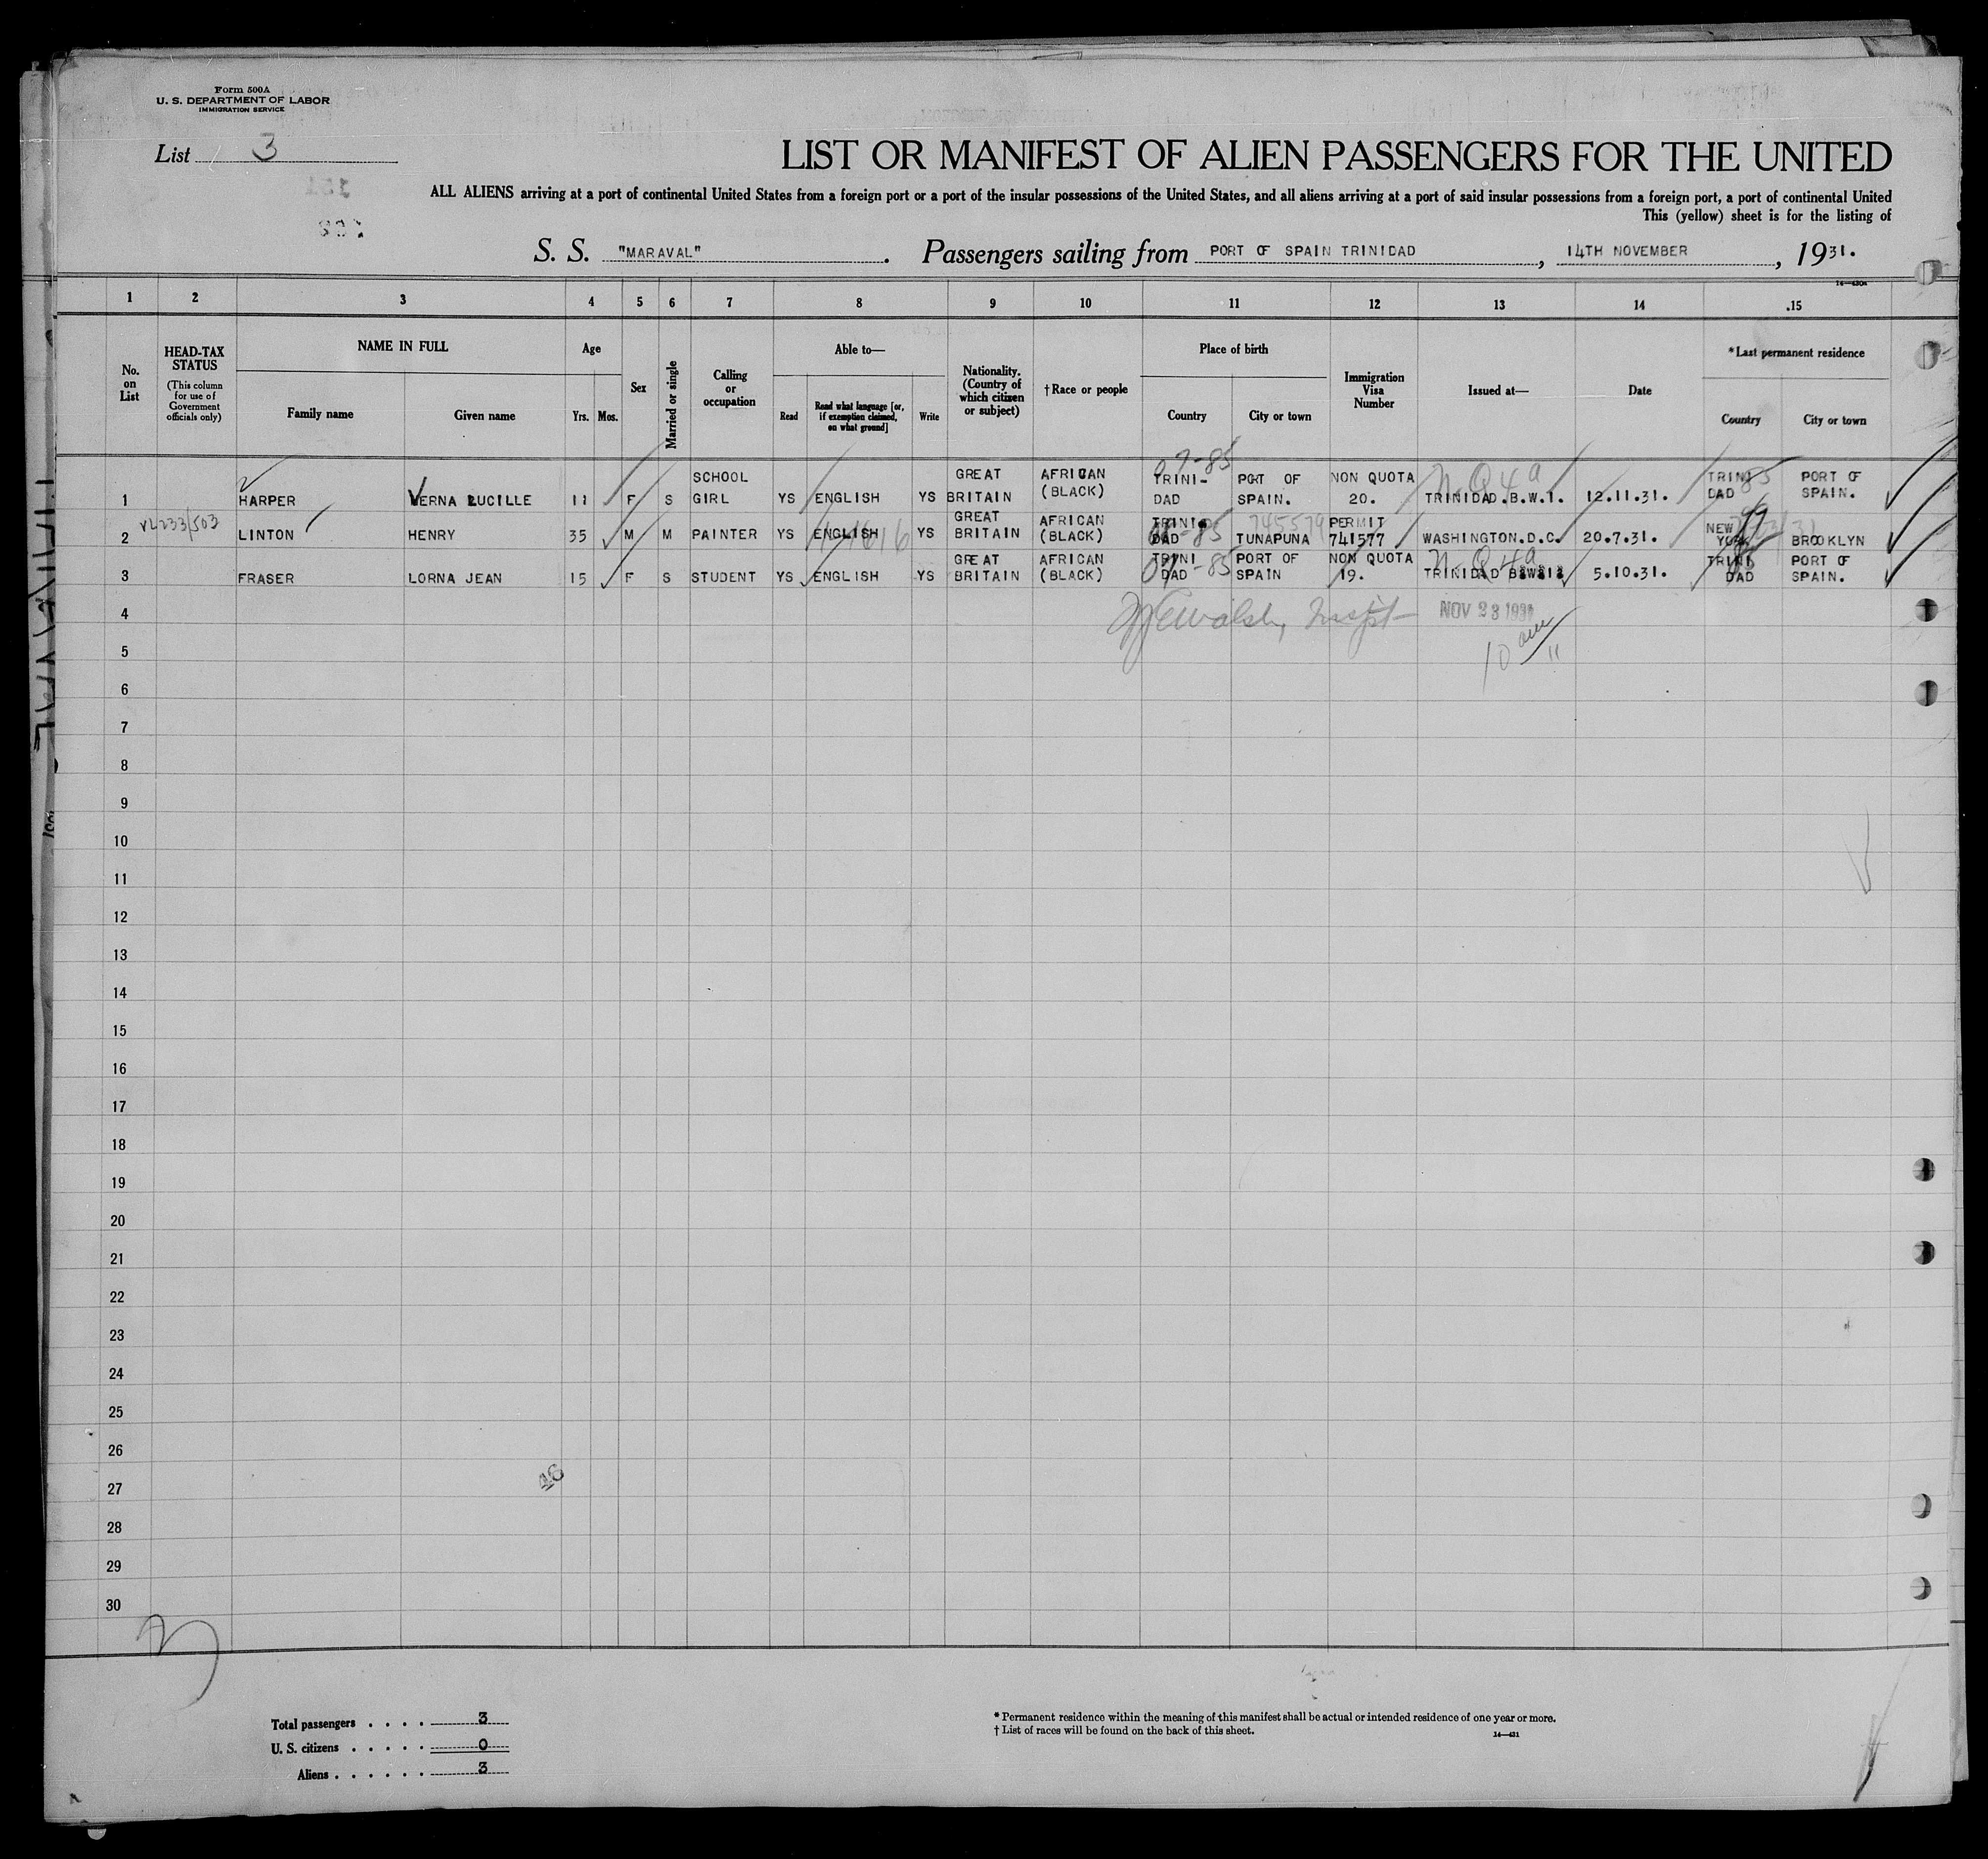 Form 500A
U. S. DEPARTMENT OF LABOR
IMMIGRATION SERVICE
List 3
LIST OR MANIFEST OF ALIEN PASSENGERS FOR THE UNITED
ALL ALIENS arriving at a port of continental United States from a foreign port or a port of the insular possessions of the United States, and all aliens arriving at a port of said insular possessions from a foreign port, a port of continental United
This (yellow) sheet is for the listing of
S. S. "MARAVAL". Passengers sailing from PORT OF SPAIN TRINIDAD, 14TH NOVEMBER, 1931.
1 2 3 4 5 6 7 8 9 10 11 12 13 14 15
No. on List
HEAD-TAX STATUS (This column for use of Government officials only)
NAME IN FULL
Family name Given name
Age
Yrs. Mos.
Sex
Married or single
Calling or occupation
Able to—
Read Read what language [or, if exemption claimed, on what ground] Write
Nationality. (Country of which citizen or subject)
† Race or people
Place of birth
Country City or town
Immigration Visa Number
Issued at—
Date
*Last permanent residence
Country City or town
1 HARPER VERNA LUCILLE 11 F S SCHOOL GIRL YS ENGLISH YS GREAT BRITAIN AFRICAN (BLACK) TRINI-DAD PORT OF SPAIN. NON QUOTA 20. TRINIDAD.B.W.I. 12.11.31. TRINI DAD PORT OF SPAIN.
2 LINTON HENRY 35 M M PAINTER YS ENGLISH YS GREAT BRITAIN AFRICAN (BLACK) TRINI DAD TUNAPUNA PERMIT 741577 WASHINGTON.D.C. 20.7.31. NEW YORK BROOKLYN
3 FRASER LORNA JEAN 15 F S STUDENT YS ENGLISH YS GREAT BRITAIN AFRICAN (BLACK) TRINI DAD PORT OF SPAIN NON QUOTA 19. TRINIDAD 5.10.31. TRINI DAD PORT OF SPAIN.
4 NOV 23 1931
5
6
7
8
9
10
11
12
13
14
15
16
17
18
19
20
21
22
23
24
25
26
27
28
29
30
Total passengers . . . . 3
U. S. citizens . . . . . 0
Aliens . . . . . . 3
* Permanent residence within the meaning of this manifest shall be actual or intended residence of one year or more.
† List of races will be found on the back of this sheet.
14—431